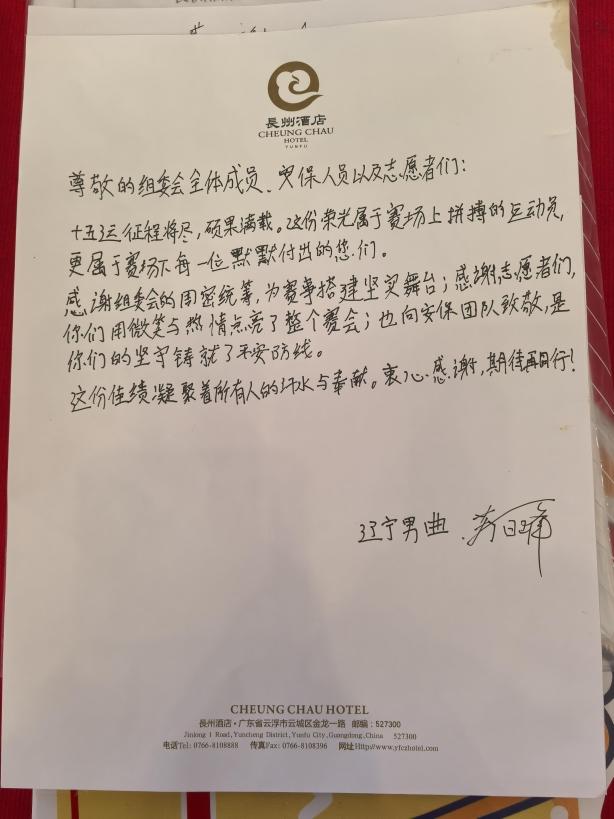 長州酒店
CHEUNG CHAU
HOTEL
YUNFU
尊敬的组委会全体成员、安保人员以及志愿者们：
十五运征程将尽，硕果满载。这份荣光属于赛场上拼搏的运动员，
更属于赛场下每一位默默付出的您们。
感谢组委会的周密统筹，为赛事搭建坚实舞台；感谢志愿者们，
你们用微笑与热情点亮了整个赛会；也向安保团队致敬，是
你们的坚守铸就了平安防线。
这份佳绩凝聚着所有人的汗水与奉献。衷心感谢，期待再同行！
辽宁男曲
CHEUNG CHAU HOTEL
長州酒店·广东省云浮市云城区金龙一路 邮编：527300
Jinlong 1 Road, Yuncheng District, Yunfu City, Guangdong, China 527300
电话Tel: 0766-8108888 传真Fax: 0766-8108396 网址Http://www.yfczhotel.com